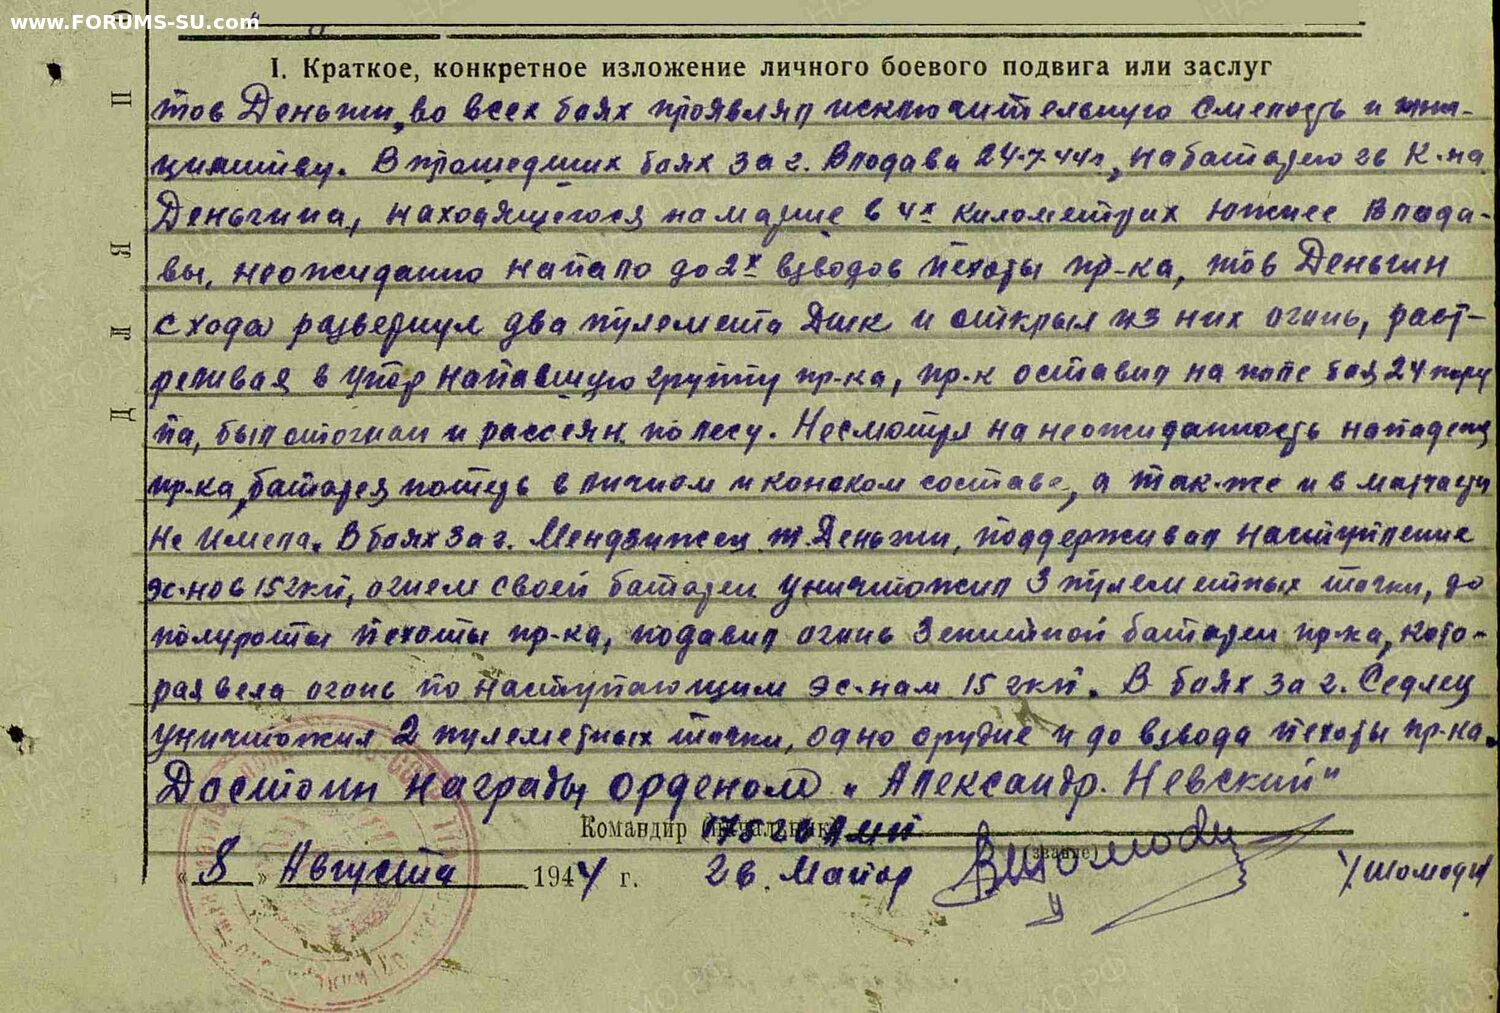 www.FORUMS-SU.com
I. Краткое, конкретное изложение личного боевого подвига или заслуг
тов Деньгин, во всех боях проявлял исключительную смелость и ини-
циативу. В прошедших боях за г. Влодава 24.7.44г., на батарею гв к-на
Деньгина, находящегося на марше в 4х километрах южнее Влода-
вы, неожиданно напало до 2х взводов пехоты пр-ка, тов Деньгин
с хода развернул два пулемета Дшк и открыл из них огонь, раст-
реливая в упор напавшую группу пр-ка, пр-к оставил на поле боя 24 тру
па, был отогнан и рассеян по лесу. Несмотря на неожиданность нападения
пр-ка, батарея потерь в личном и конском составе, а так-же и в матчасти
не имела. В боях за г. Мендзижец т. Деньгин, поддерживал наступление
эс-нов 15 гкп, огнем своей батареи уничтожил 3 пулеметных точки, до
полуроты пехоты пр-ка, подавил огонь зенитной батареи пр-ка, кото-
рая вела огонь по наступающим эс-нам 15 гкп. В боях за г. Седлец
уничтожил 2 пулеметных точки, одно орудие и до взвода пехоты пр-ка.
Достоин награды орденом „Александр. Невский"
Командир (начальник)
(звание)
„8" Августа 1944 г. гв. Майор
П
Я
Л
Д